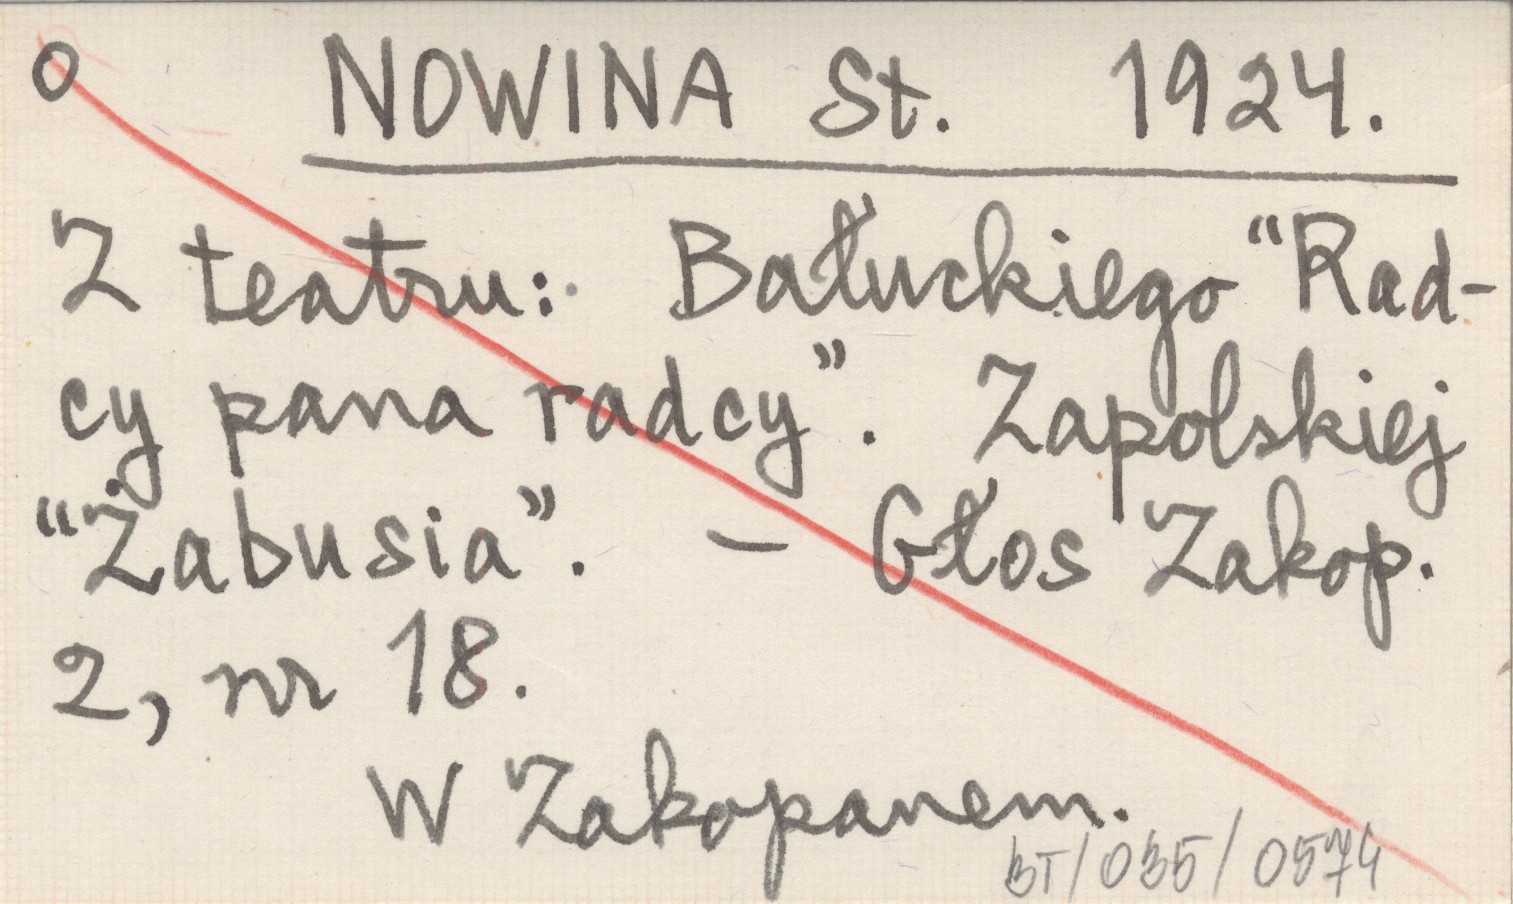 O NOWINA St. 1924.
Z teatru: Bałuckiego "Rad-
cy pana radcy". Zapolskiej
"Żabusia". - Głos Zakop.
2, nr 18.
W Zakopanem.
BT/035/0574